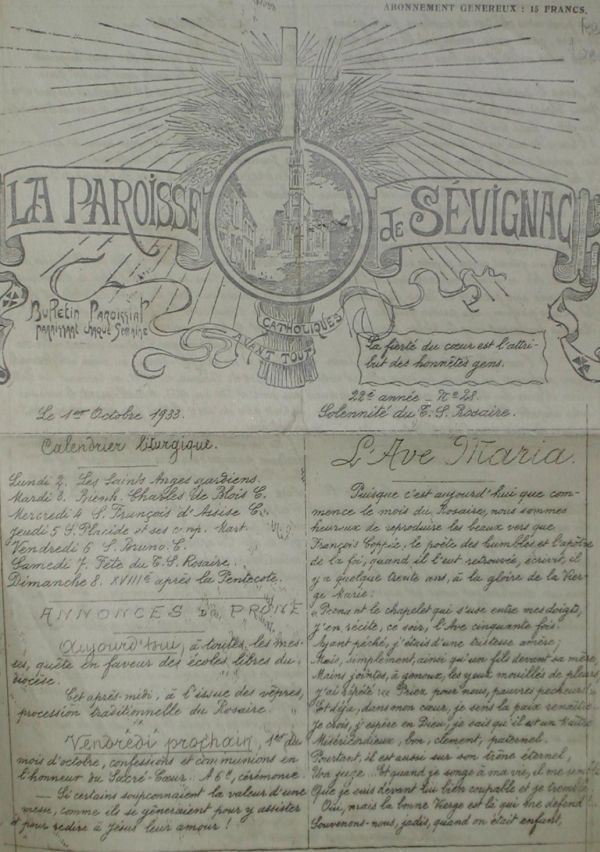 ABONNEMENT GENEREUX : 15 FRANCS.
LA PAROISSE de SÉVIGNAC
Bulletin Paroissial
paraissant chaque Semaine
CATHOLIQUES
AVANT TOUT
La fierté du cœur est l'attri-
but des honnêtes gens.
22e année - No 28.
Le 1er Octobre 1933.
Solennité du T. S. Rosaire.
Calendrier liturgique.
Lundi 2. Les Saints Anges gardiens.
Mardi 3. Bienh. Charles de Blois C.
Mercredi 4 S. François d'Assise C.
Jeudi 5 S. Placide et ses cmp. Mart.
Vendredi 6 S. Bruno. C.
Samedi 7. Fête du T. S. Rosaire.
Dimanche 8. XVIIIe après la Pentecote.
ANNONCES du PRÔNE
Aujourd'hui, à toutes les mes-
ses, quête en faveur des écoles libres du
diocèse.
Cet après-midi, à l'issue des vêpres,
procession traditionnelle du Rosaire.
Vendrédi prochain, 1er du
mois d'octobre, confessions et communions en
l'honneur du Sacré-Cœur. A 6h, cérémonie.
- Si certains soupçonnaient la valeur d'une
messe, comme ils se gêneraient pour y assister
et pour redire à Jésus leur amour !
L'Ave Maria.
Puisque c'est aujourd'hui que com-
mence le mois du Rosaire, nous sommes
heureux de reproduire les beaux vers que
François Coppée, le poète des humbles et l'apôtre
de la foi, quand il l'eut retrouvée, écrivit, il
y a quelque trente ans, à la gloire de la Vier-
ge Marie :
"Prenant le chapelet qui s'use entre mes doigts,
J'en récite, ce soir, l'Ave cinquante fois.
Ayant péché, j'étais d'une tristesse amère ;
Mais, simplement, ainsi qu'un fils devant sa mère,
Mains jointes, à genoux, les yeux mouillés de pleurs
J'ai répété : "Priez pour nous, pauvres pecheurs
Et déjà, dans mon cœur, je sens la paix renaître.
Je crois, j'espère en Dieu ; je sais qu'il est un Maître
Miséricordieux, bon, clement, paternel.
Pourtant, il est aussi sur son trône éternel,
Un juge... Et quand je songe à ma vie, il me semble
Que je suis devant lui bien coupable et je tremble.
Oui, mais la bonne Vierge est là qui me défend !
Souvenons-nous, jadis, quand on était enfant,